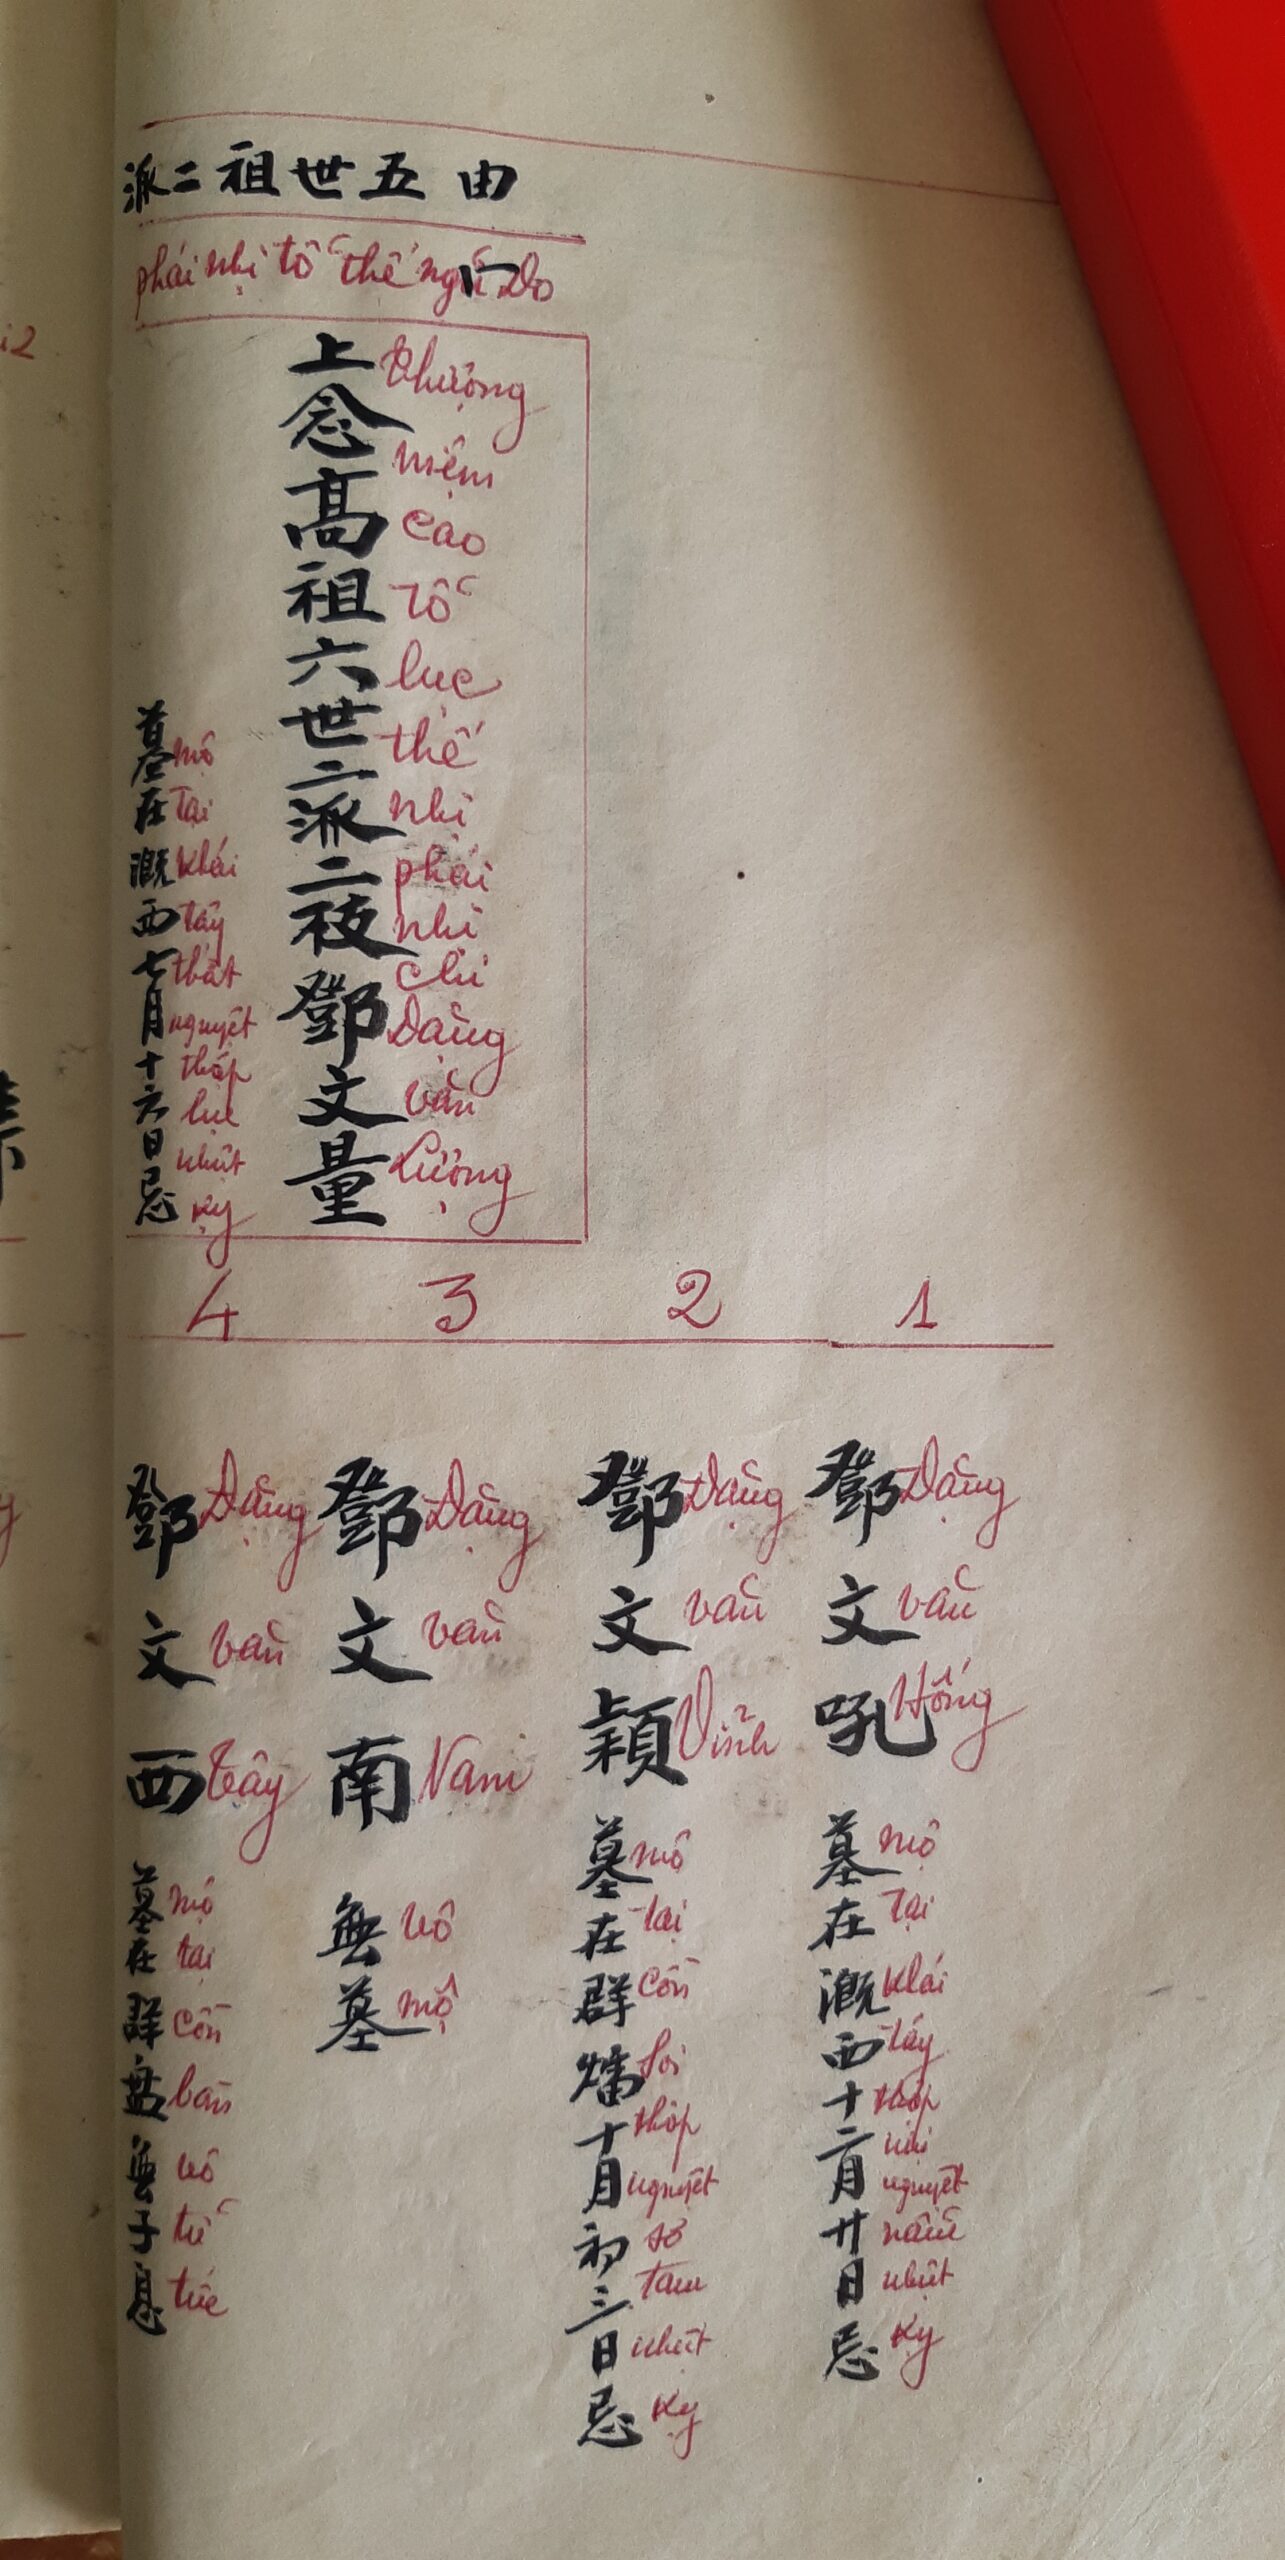 由五世祖二派
phái nhị tổ thế ngũ Do
上念高祖六世二派二枝鄧文量
thượng niệm cao tổ lục thế nhị phái nhị chi Đặng văn Lượng
墓在溉西七月十六日忌
mộ tại khái tây thất nguyệt thập lục nhựt kỵ
1
鄧文吼
Đặng văn Hống
墓在溉西十二月廿日忌
mộ tại khái tây thập nhị nguyệt nhựt kỵ
2
鄧文穎
Đặng văn Vĩnh
墓在群燔十月初三日忌
mộ tại cồn thập nguyệt sơ tam nhựt kỵ
3
鄧文南
Đặng văn Nam
無墓
vô mộ
4
鄧文西
Đặng văn Tây
墓在群盘無子息
mộ tại cồn bàn vô tử tức
i2